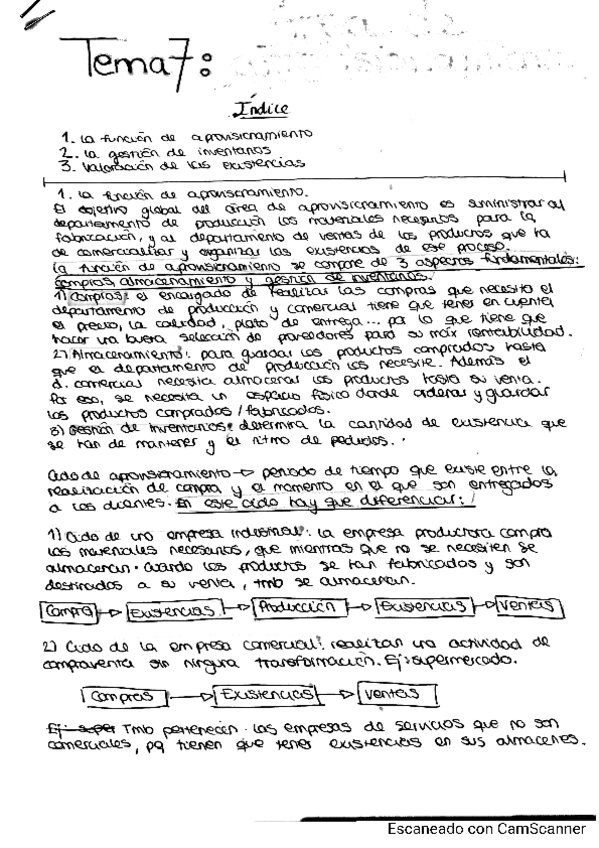 Tema 7: Área de aprovisionamiento
Índice
1. La función de aprovisionamiento
2. La gestión de inventarios
3. Valoración de las existencias
1. La función de aprovisionamiento.
El objetivo global del área de aprovisionamiento es suministrar al
departamento de producción los materiales necesarios para la
fabricación, y al departamento de ventas de los productos que ha
de comercializar y organizar las existencias de ese proceso.
La función de aprovisionamiento se compone de 3 aspectos fundamentales:
compras, almacenamiento y gestión de inventarios.
1) Compras: el encargado de realizar las compras que necesita el
departamento de producción y comercial tiene que tener en cuenta
el precio, la calidad, plazo de entrega... por lo que tiene que
hacer una buena selección de proveedores para su máx rentabilidad.
2) Almacenamiento: para guardar los productos comprados hasta
que el departamento de producción los necesite. Además el
d. comercial necesita almacenar los productos hasta su venta.
Por eso, se necesita un espacio físico donde ordenar y guardar
los productos comprados/fabricados.
3) Gestión de inventarios: determina la cantidad de existencias que
se han de mantener y el ritmo de pedidos.
Ciclo de aprovisionamiento → periodo de tiempo que existe entre la
realización de compra y el momento en el que son entregados
a los clientes. En este ciclo hay que diferenciar:
1) Ciclo de una empresa industrial: la empresa productora compra
los materiales necesarios, que mientras que no se necesiten se
almacenan. Cuando los productos se han fabricados y son
destinados a su venta, tmb se almacenan.
Compra → Existencias → Producción → Existencias → Ventas
2) Ciclo de la empresa comercial: realizan una actividad de
compraventa sin ninguna transformación. Ej: supermercado.
Compras → Existencias → Ventas
Ej: super Tmb pertenecen las empresas de servicios que no son
comerciales, pq tienen que tener existencias en sus almacenes.
Escaneado con CamScanner